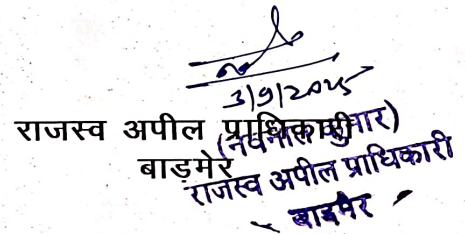 3/9/2025
राजस्व अपील प्राधिकारी
(नवनीत कुमार)
बाड़मेर
राजस्व अपील प्राधिकारी
बाड़मेर